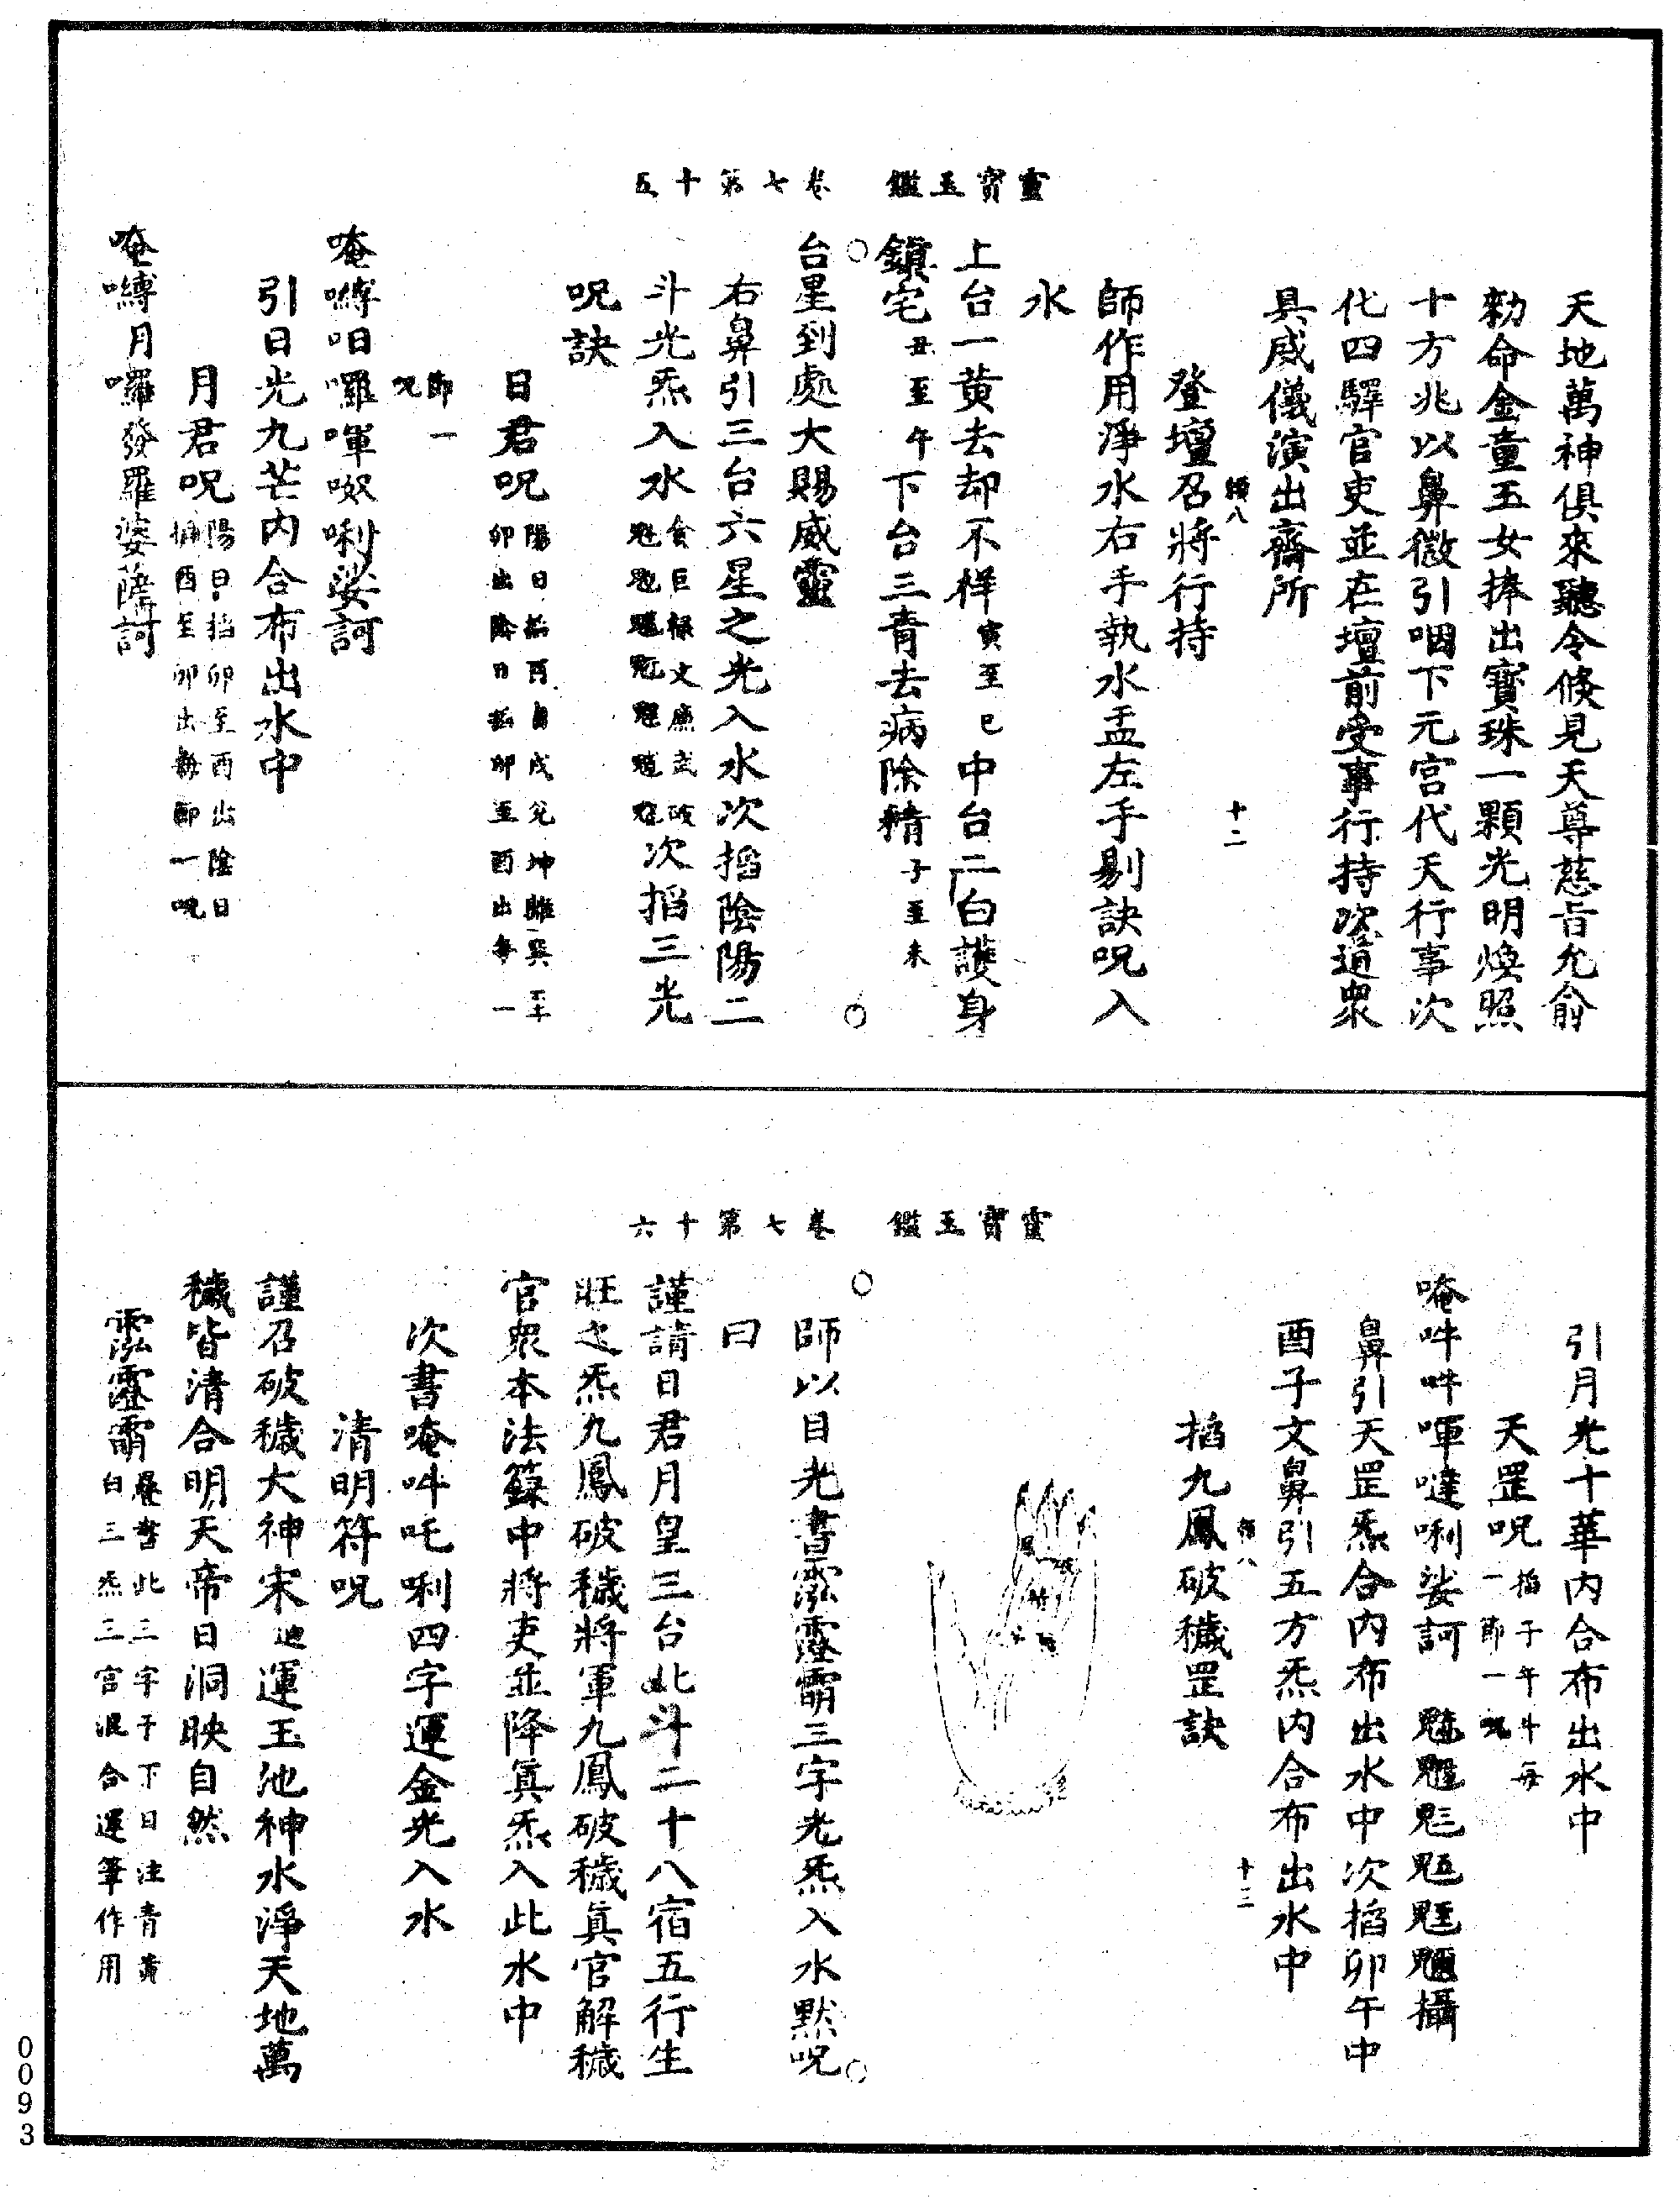 天地萬神俱來聽令倏見天尊慈旨允俞
勑命金童玉女捧出寶珠一顆光明煥照
十方兆以鼻微引咽下元宮代天行事次
化四驛官吏並在壇前受事行持次道眾
具威儀演出齋所
十二
登壇召將行持
師作用淨水右手執水盂左手剔訣呪入
水
上台一黄去却不祥寅至巳中台二白護身
鎮宅丑至午下台三青去病除精子至未
靈寶玉鑑 卷七第十五
台星到處大賜威靈
右鼻引三台六星之光入水次掐陰陽二
斗光炁入水貪巨祿文廉武破次掐三光
呪訣
日君呪陽日掐酉自戌兊坤離巽
卯出陰日掐卯至酉出每一
節一
呪
唵嚩呾囉喗呶唎娑訶
引日光九芒内合布出水中
月君呪陽日掐卯至酉出陰日
掐酉至卯出每節一呪
唵嚩月囉發羅婆薩訶
引月光十華内合布出水中
天罡呪掐子午斗每
一節一呪
唵吽吽喗噠唎娑訶 攝
鼻引天罡炁合内布出水中次掐卯午中
酉子文鼻引五方炁内合布出水中
十三
掐九鳳破穢罡訣
靈寶玉鑑 卷七第十六
師以目光書三字光炁入水黙呪
曰
謹請日君月皇三台北斗二十八宿五行生
旺之炁九鳳破穢將軍九鳳破穢眞官解穢
官衆本法籙中將吏並降眞炁入此水中
次書唵吽吒唎四字運金光入水
清明符呪
謹召破穢大神宋迪運玉池神水淨天地萬
穢皆清合明天帝日洞映自然
疊書此三字于下目注青黄
白三炁三宫混合運筆作用
0093